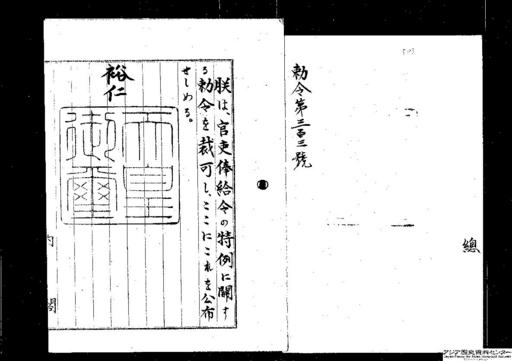 勅令第三百三號
總
朕は、官吏俸給令の特例に關す
る勅令を裁可し、ここにこれを公布
せしめる。
裕仁
天皇
御璽
内閣
アジア歴史資料センター